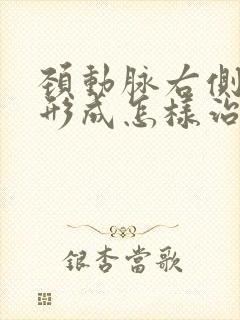 頚動脉右側
形成怎樣治
銀杏當歌